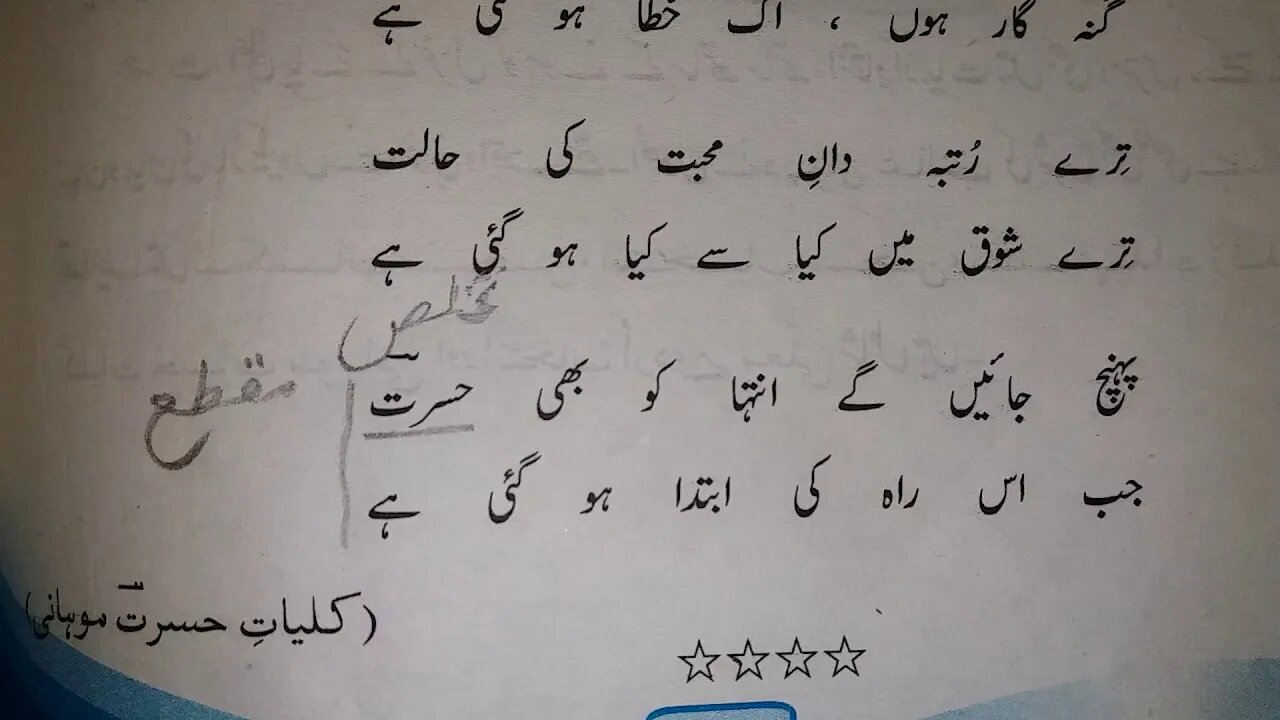 گنہ گار ہوں ، اک خطا ہو گئی ہے
تِرے رُتبہ دانِ محبت کی حالت
تِرے شوق میں کیا سے کیا ہو گئی ہے
تخلص
پہنچ جائیں گے انتہا کو بھی حسرتؔ
مقطع
جب اس راہ کی ابتدا ہو گئی ہے
(کلیاتِ حسرتؔ موہانی)